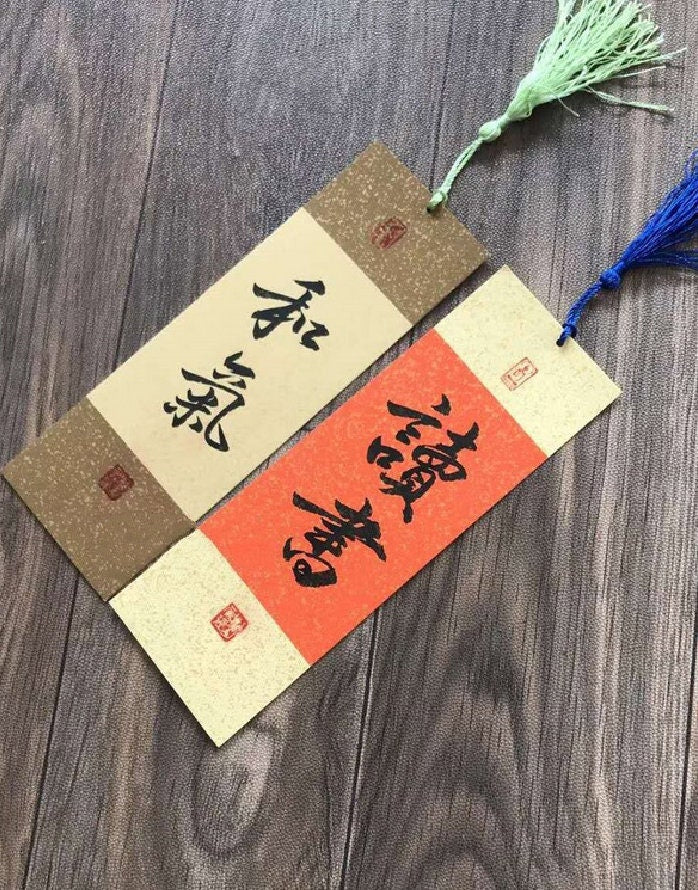 和氣
讀書